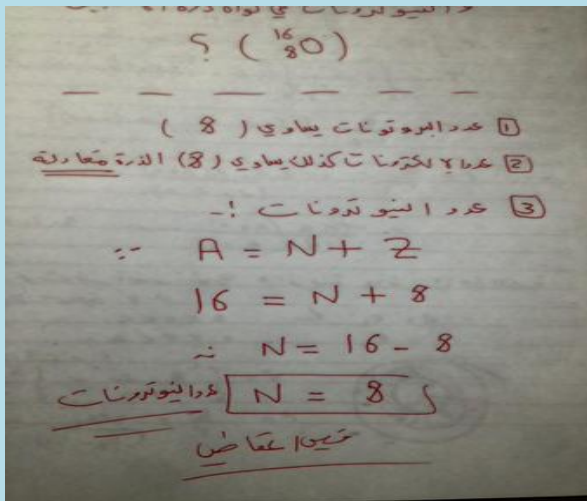 والنيوترونات في نواة ذرة
( ¹⁶₈O ) ؟
1 عدد البروتونات يساوي ( 8 )
2 عدد الالكترونات كذلك يساوي (8) الذرة متعادلة
3 عدد النيوترونات :-
∵ A = N + Z
16 = N + 8
∴ N = 16 - 8
N = 8 عدد النيوترونات